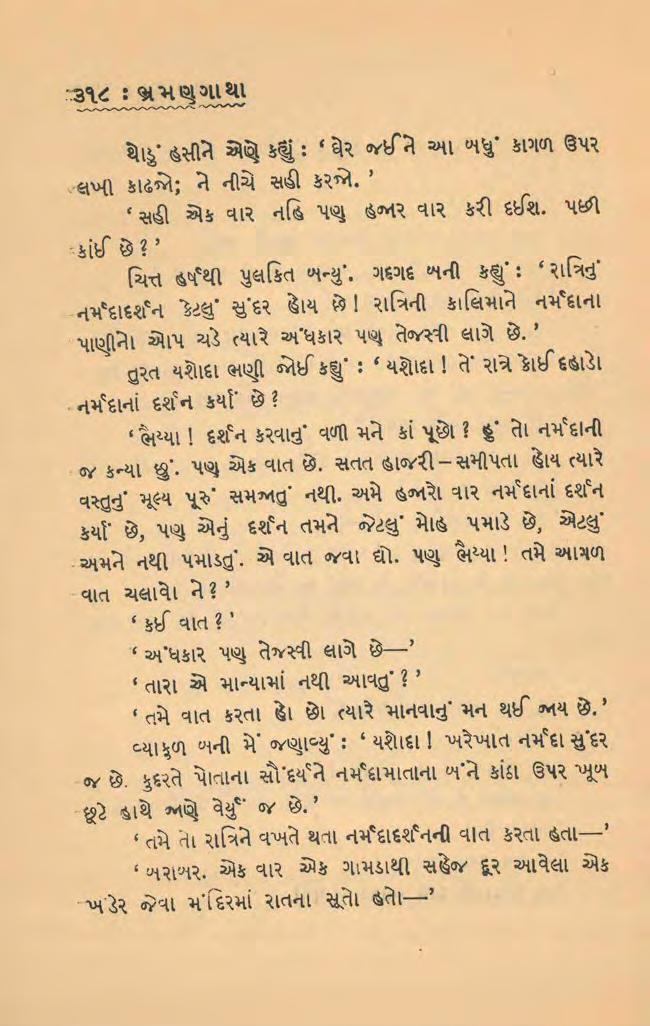 ૩૧૮ : ભ્રમણગાથા
થોડું હસીને એણે કહ્યું : ‘ ઘેર જઈ ને આ બધું કાગળ ઉપર
લખી કાઢજો; ને નીચે સહી કરજો. ’
‘ સહી એક વાર નહિ પણ હજાર વાર કરી દઈશ. પછી
કાંઈ છે ? ’
ચિત્ત હર્ષથી પુલકિત બન્યું. ગદગદ બની કહ્યું : ‘ રાત્રિનું
નર્મદાદર્શન કેટલું સુંદર હોય છે ! રાત્રિની કાલિમાને નર્મદાના
પાણીનો ઓપ ચડે ત્યારે અંધકાર પણ તેજસ્વી લાગે છે. ’
તુરત યશોદા ભણી જોઈ કહ્યું : ‘ યશોદા ! તેં રાત્રે કોઈ દહાડો
નર્મદાનાં દર્શન કર્યાં છે ?
‘ ભૈય્યા ! દર્શન કરવાનું વળી મને કાં પૂછો ? હું તો નર્મદાની
જ કન્યા છું. પણ એક વાત છે. સતત હાજરી – સમીપતા હોય ત્યારે
વસ્તુનું મૂલ્ય પૂરું સમજાતું નથી. અમે હજારો વાર નર્મદાનાં દર્શન
કર્યાં છે, પણ એનું દર્શન તમને જેટલું મોહ પમાડે છે, એટલું
અમને નથી પમાડતું. એ વાત જવા દ્યો. પણ ભૈય્યા ! તમે આગળ
વાત ચલાવો ને ? ’
‘ કઈ વાત ? ’
‘ અંધકાર પણ તેજસ્વી લાગે છે—’
‘ તારા એ માન્યામાં નથી આવતું ? ’
‘ તમે વાત કરતા હો છો ત્યારે માનવાનું મન થઈ જાય છે. ’
વ્યાકુળ બની મેં જણાવ્યું : ‘ યશોદા ! ખરેખાત નર્મદા સુંદર
જ છે. કુદરતે પોતાના સૌંદર્યને નર્મદામાતાના બંને કાંઠા ઉપર ખૂબ
છૂટે હાથે જાણે વેર્યું જ છે. ’
‘ તમે તો રાત્રિને વખતે થતા નર્મદાદર્શનની વાત કરતા હતા—’
‘ બરાબર. એક વાર એક ગામડાથી સહેજ દૂર આવેલા એક
ખંડેર જેવા મંદિરમાં રાતના સૂતો હતો—’